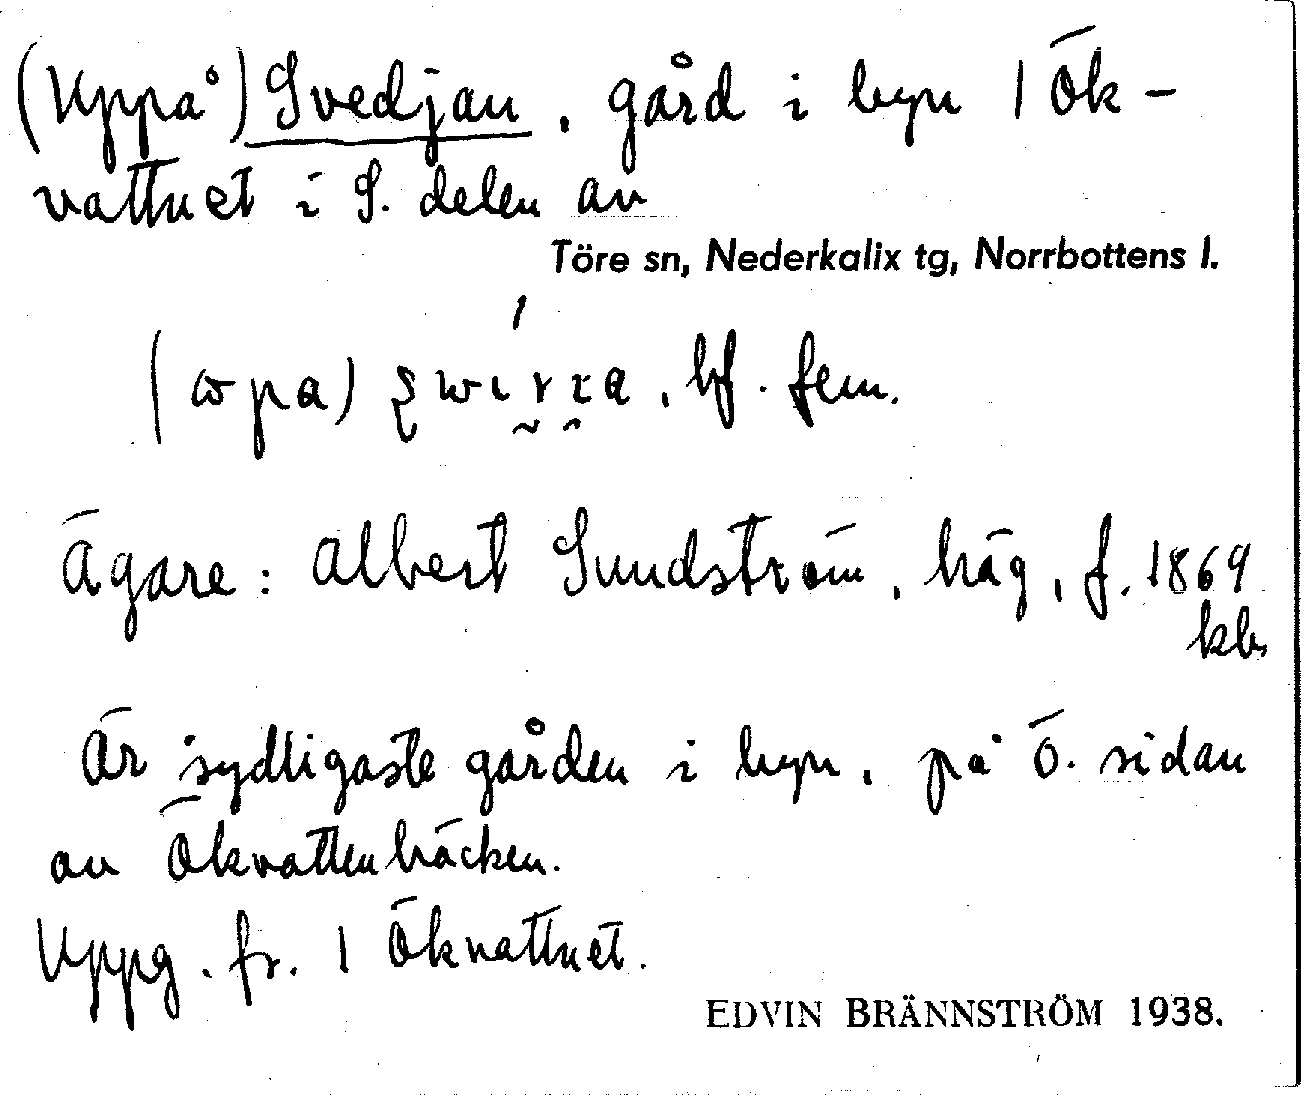 (Uppå) Svedjan, gård i byn 1 Ök-
vattnet i S. delen av
Töre sn, Nederkalix tg, Norrbottens l.
bf. fem.
Ägare: Albert Sundström, häg, f. 1869
kb,
Är sydligaste gården i byn, på Ö. sidan
av Ökvattenbäcken.
Uppg. fr. 1 Ökvattnet.
EDVIN BRÄNNSTRÖM 1938.